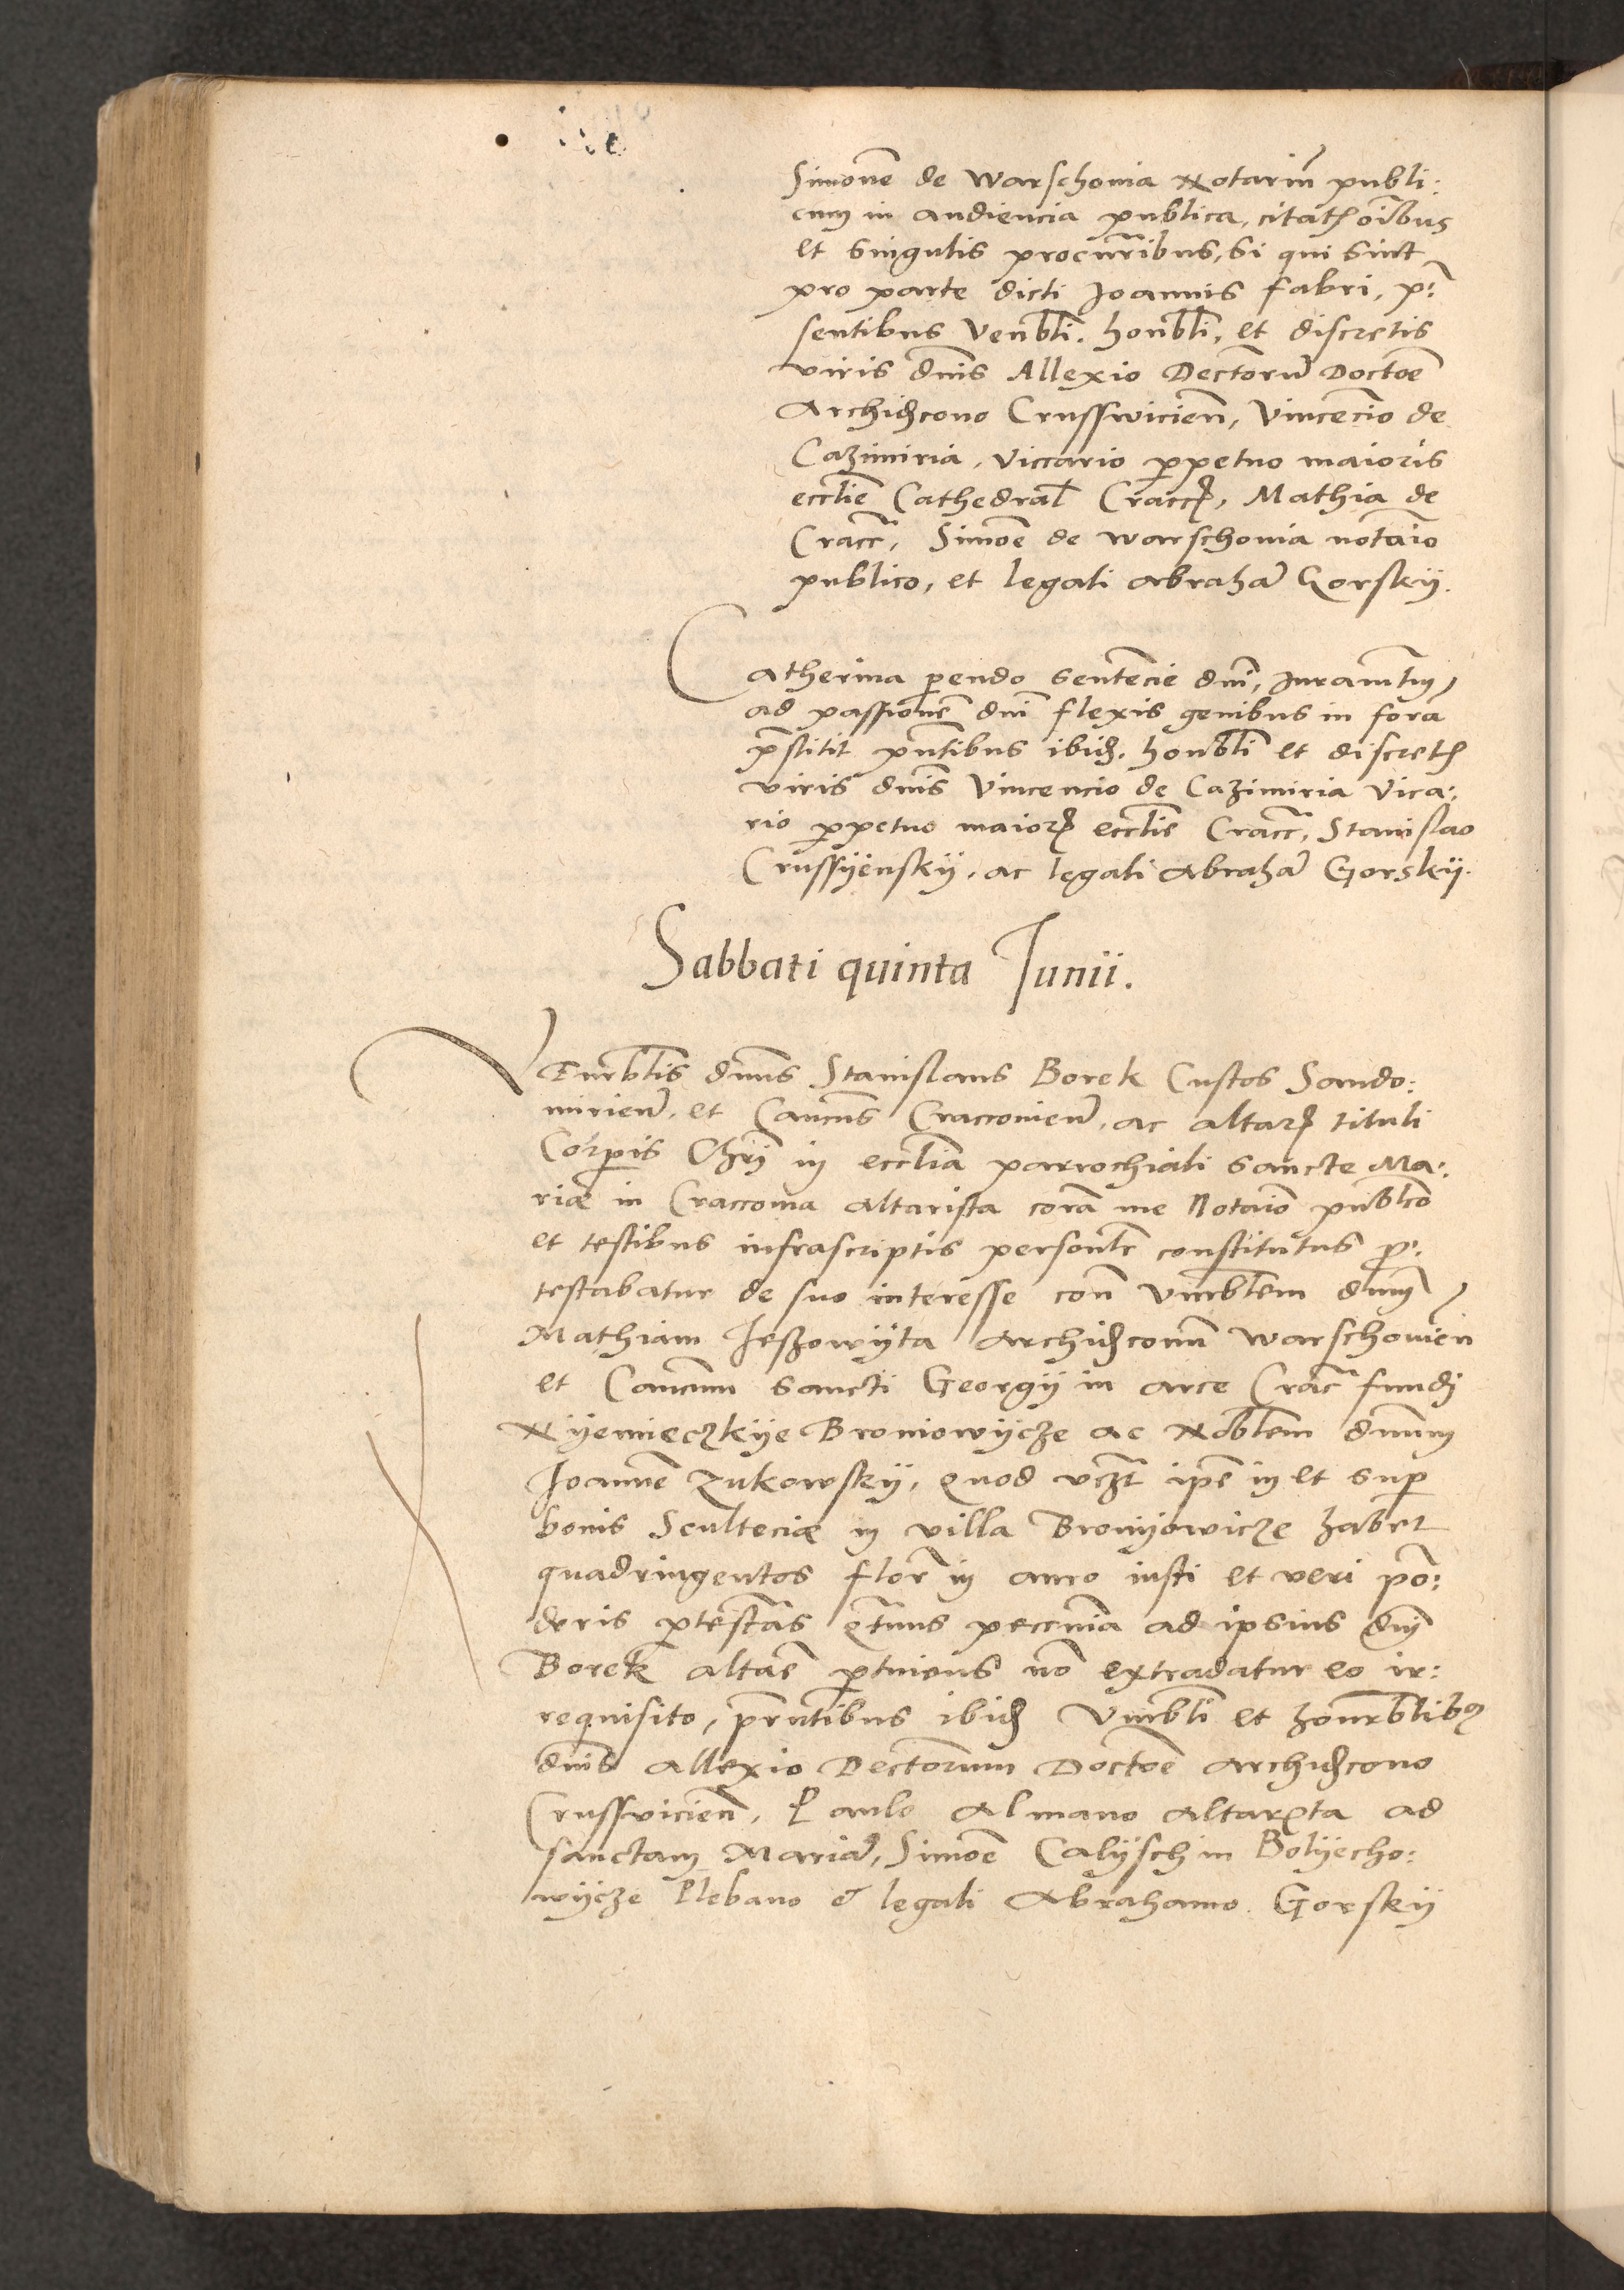 Simonē de Warschouia Notariū publi:
cum in audiencia publica, citat͛ oībus
et singulis procur̄ribus, si qui sint
pro parte dicti Joannis fabri, p̄:
sentibus Venbl̄i. honbl̄i, et discretis
viris dn̄is Allexio Dectorū Doctoē
Archid̄cono Crusswicien̄, Vincēcio de
Cazimiria, Viccario ꝑpetuo maioris
eccl̄ie Cathedral̄ Cracc̄, Mathia de
Cracc̄, Simoē de warschouia notaīo
publico, et legali abrahā Gorskÿ.
Catherina ꝑendo sentēcie dn̄i, Juramtū
ad passionē dn̄i flexis genibus in fora
p̄stitit pn̄tibus ibid. honbl̄i et discret͛
viris dn̄is Vincencio de Cazimiria Vica:
rio ꝑpetuo maior̄ eccl̄ie Cracc̄, Stanislao
Crussÿenskÿ, ac legali Abrahā Gorskÿ.
Sabbati quinta Junii.
Venrbl̄is dn̄us Stanislaus Borek Custos Sando:
mirien̄, et Can̄cus Cracconien̄, ac altar̄ tituli
Corꝑis Chri̅ in eccl̄ia parrochiali sancte Ma:
riæ in Cracconia Altarista corā me Notaīo publico
et testibus infrascriptis personl̄r constitutus ꝓ:
testabatur de suo interesse con̄ Vnrbl̄em dn̄um
Mathiam Jeszowÿta Archid̄conū warschouien̄
et Can̄cum sancti Georgÿ in arce Crac̄ fundi
Nÿemieczkÿe Broniowÿcze ac Nobl̄em dn̄um
Joannē Zukowskÿ, quod vcz̄t ip̄e in et suꝑ
bonis Sculteciæ in villa Bronÿowicze habet
quadringentos flor̄ in auro iusti et veri pō:
deris ꝓtestās q̄tinus peccunia ad ipsius dn̄i
Borek altar̄e ꝑtinens nō extradatur eo ir:
requisito, pr̄ntibus ibid Vnrbl̄i et honrbl̄ibꝯ
dn̄is Allexio Dectorum Doctoē Archid̄cono
Crussvicien̄, Paulo Almano Altar̄ta ad
sanctam Mariā, Simoē Calÿsch in Bolÿecho:
wÿcze Plebano & legali Abrahamo Gorskÿ